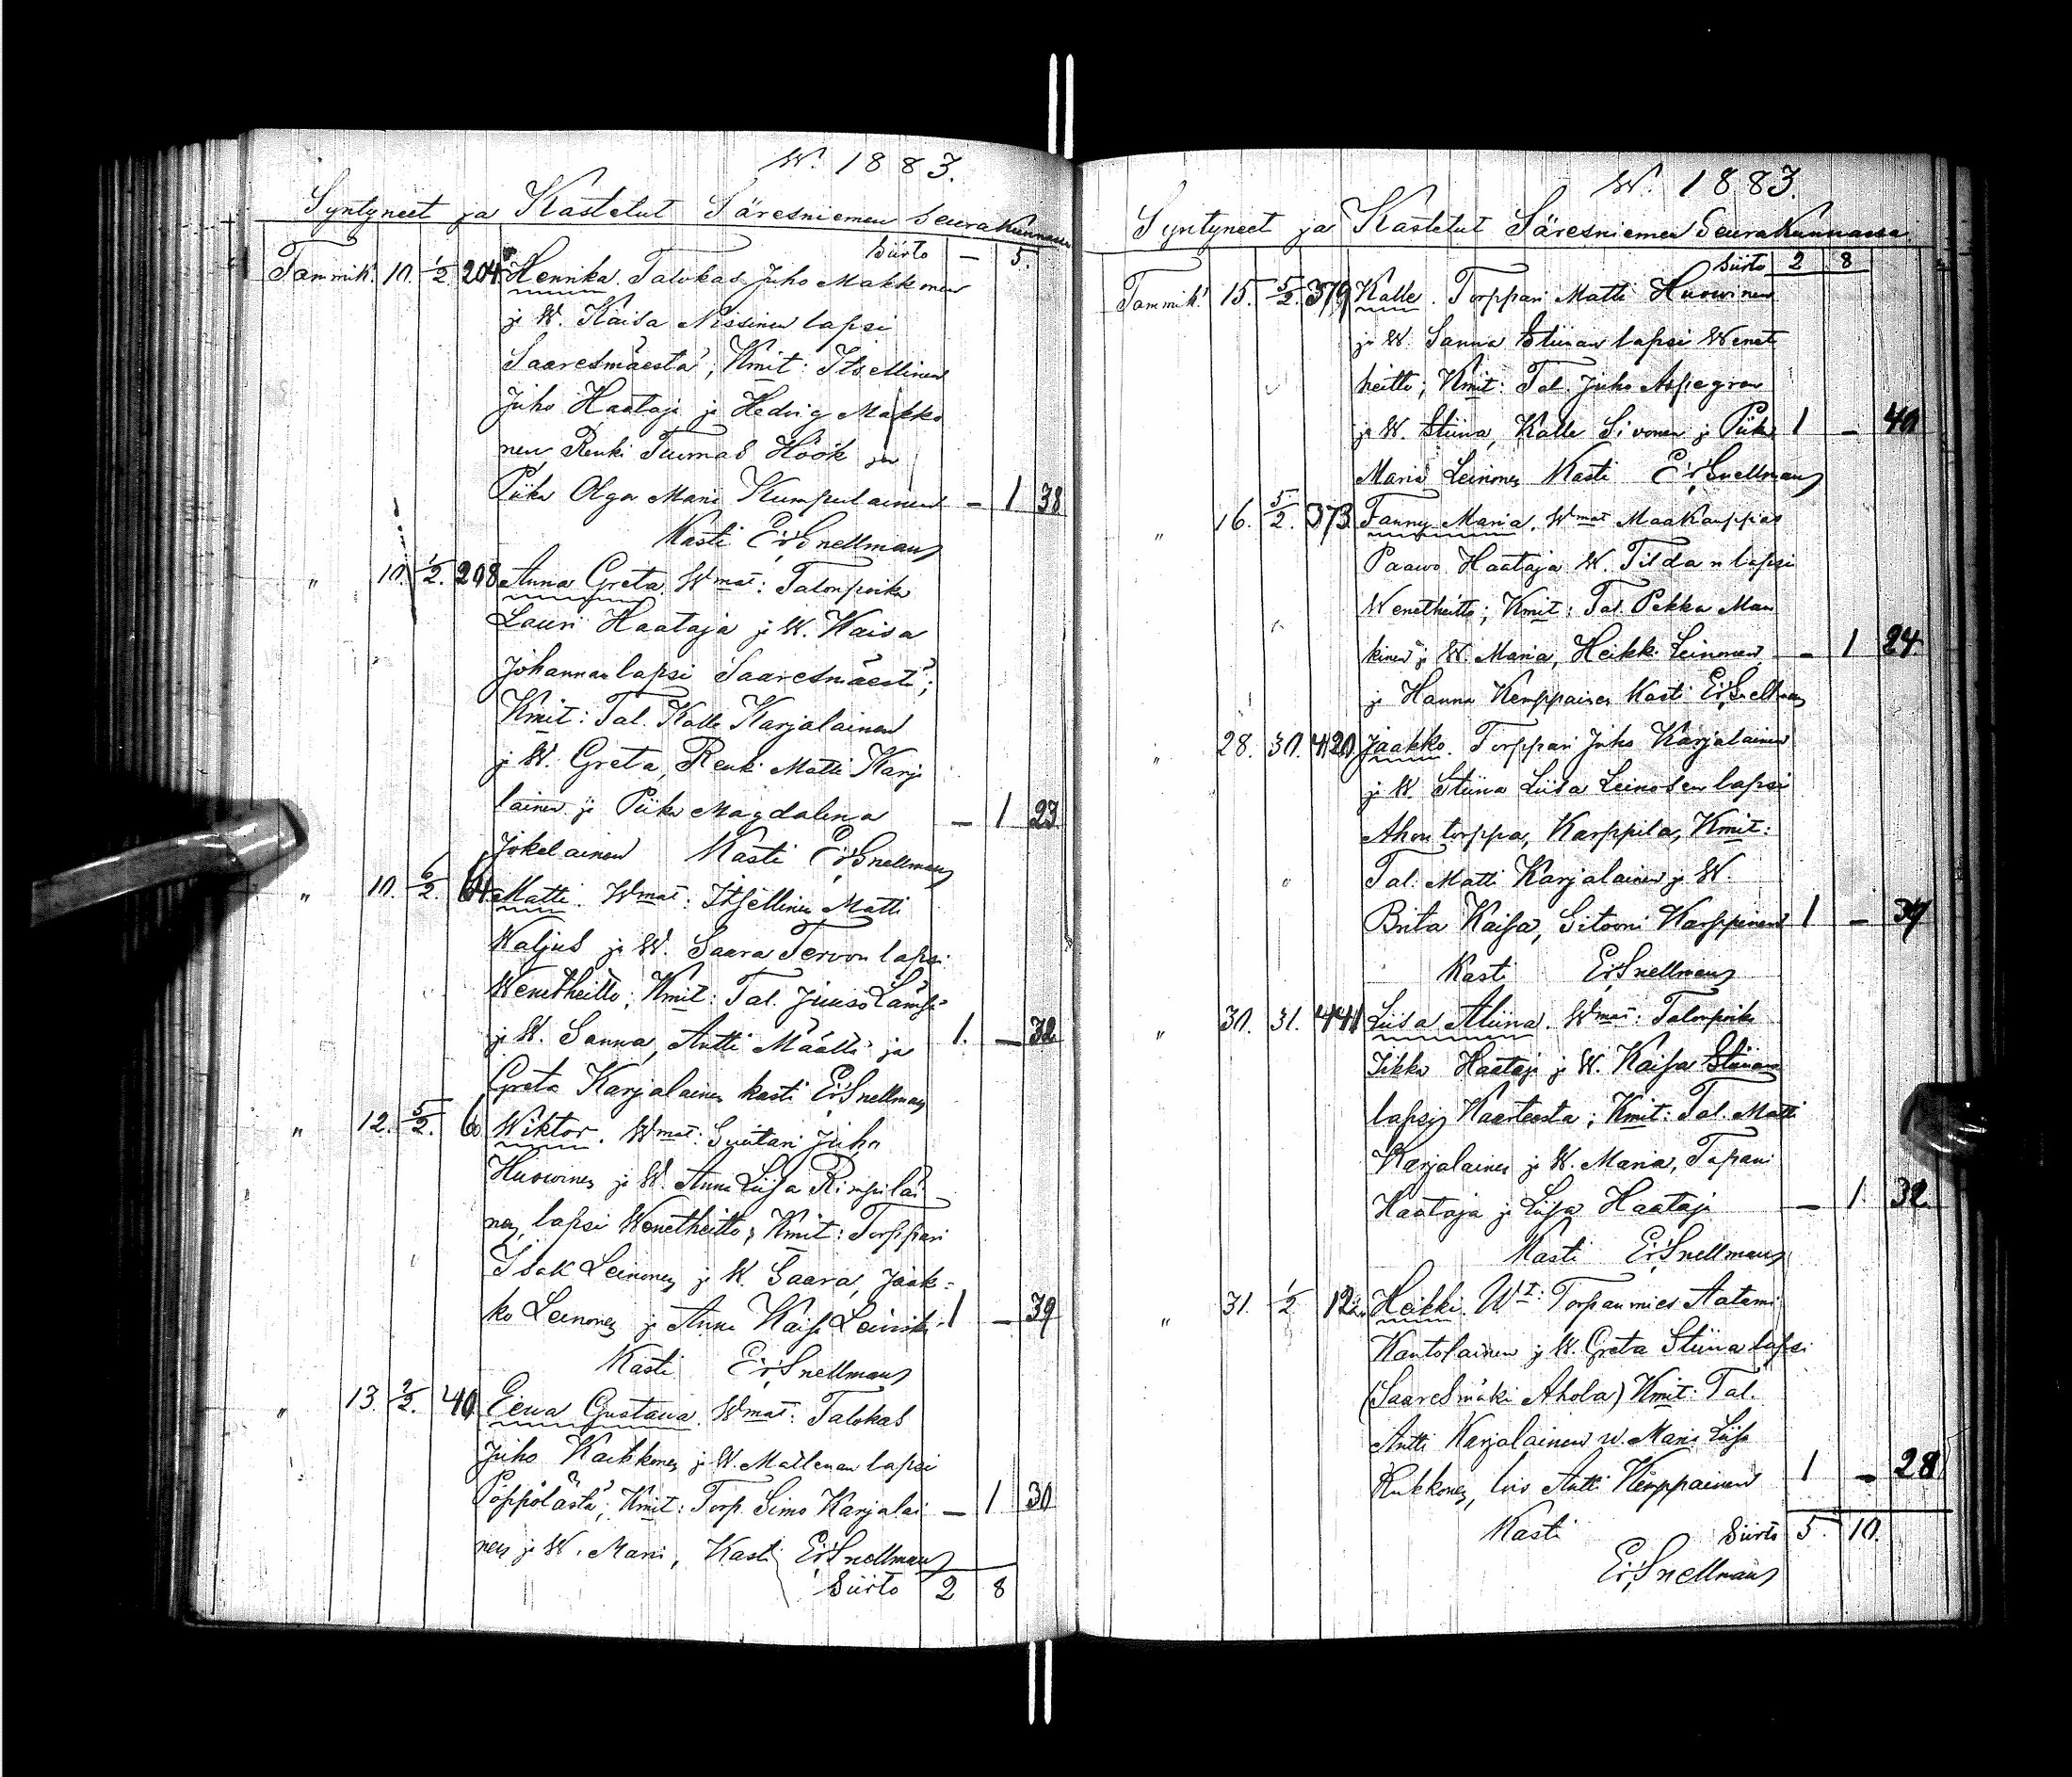 W. 1883.
Syntyneet ja Kastetut Säresniemen Seurakunnassa
Siirto — 5.
Tammik. 10. 1/2. 204 Henrika. Talokas Juho Makkonen
ja W. Kaisa Nissinen lapsi
Saaresmäestä; Kmit: Itsellinen
Juho Haataja ja Hedvig Makko
nen Renki Tuomas Höök ja
Piika Olga Maria Kumpulainen — 1 38
Kasti Er. Snellman
" 10. 1/2. 208 Anna Greta. Wmat: Talonpoika
Lauri Haataja ja W. Kaisa
Johannan lapsi Saaresmäestä;
Kmit: Tal. Kalle Karjalainen
ja W. Greta, Renki Matti Karja
lainen ja Piika Magdalena — 1 23
Jokelainen Kasti Er. Snellman
" 10. 6/2. 64 Matti. Wmat: Itsellinen Matti
Kaljus ja W. Saara Tervon lapsi
Wenetheitto; Kmit: Tal. Juuso Lämsä
ja W. Sanna, Antti Määttä ja 1. — 32
Greta Karjalainen kasti Er. Snellman
" 12. 5/2. 60 Wiktor. Wmat: Suutari Juho
Huowinen ja W. Anna Liisa Rimpiläi
nen, lapsi Wenetheitto; Kmit: Torppari
Isak Leinonen ja W. Saara, Jaak-
ko Leinonen ja Anna Kaisa 1 — 39
Kasti Er. Snellman
" 13. 2/2. 40 Eewa Gustawa. Wmat: Talokas
Juho Kaikkonen ja W. lapsi
Pöppölästä; Kmit: Torp. Simo Karjalai — 1 30
nen ja W. Maria, Kasti Er. Snellman
Siirto 2 8
W. 1883.
Syntyneet ja Kastetut Säresniemen Seurakunnassa
Siirto 2 8
Tammik. 15. 5/2. 379 Kalle. Torppari Matti Huowinen
ja W. Sanna Stiinan lapsi Wenet
heitto; Kmit: Tal. Juho Aspegren
ja W. Stiina, Kalle Sivonen ja Piika 1 — 40
Maria Leinonen Kasti Er. Snellman
" 16. 5/2. 373 Fanny Maria. Wmat Maakauppias
Paawo Haataja W. Tildan lapsi
Wenetheitto; Kmit: Tal. Pekka Man
kinen ja W. Maria, Heikki Leinonen — 1 24.
ja Hanna Kemppainen Kasti Er. Snellman
" 28. 30. 420 Jaakko. Torppari Juho Karjalainen
ja W. Stiina Liisa Leinosen lapsi
Ahon torppa, Karppila, Kmit:
Tal. Matti Karjalainen ja W.
Brita Kaisa, Karppinen 1 — 37
Kasti Er. Snellman
" 30. 31. 441 Liisa Aliina. Wmat: Talonpoika
Haataja ja W. Kaisa Stiinan
lapsi; Kmit: Tal. Matti
Karjalainen ja W. Maria, Tapani
Haataja ja Liisa Haataja — 1. 32
Kasti Er. Snellman
" 31. 1/2 Heikki. Torpanmies Aatami
Kantolainen ja W. Greta Stiina lapsi
(Saaresmäki Ahola) Kmit: Tal.
Antti Karjalainen w. Maria Liisa
Rukkonen, Antti Kemppainen 1 — 28
Kasti Siirto 5. 10.
Er. Snellman